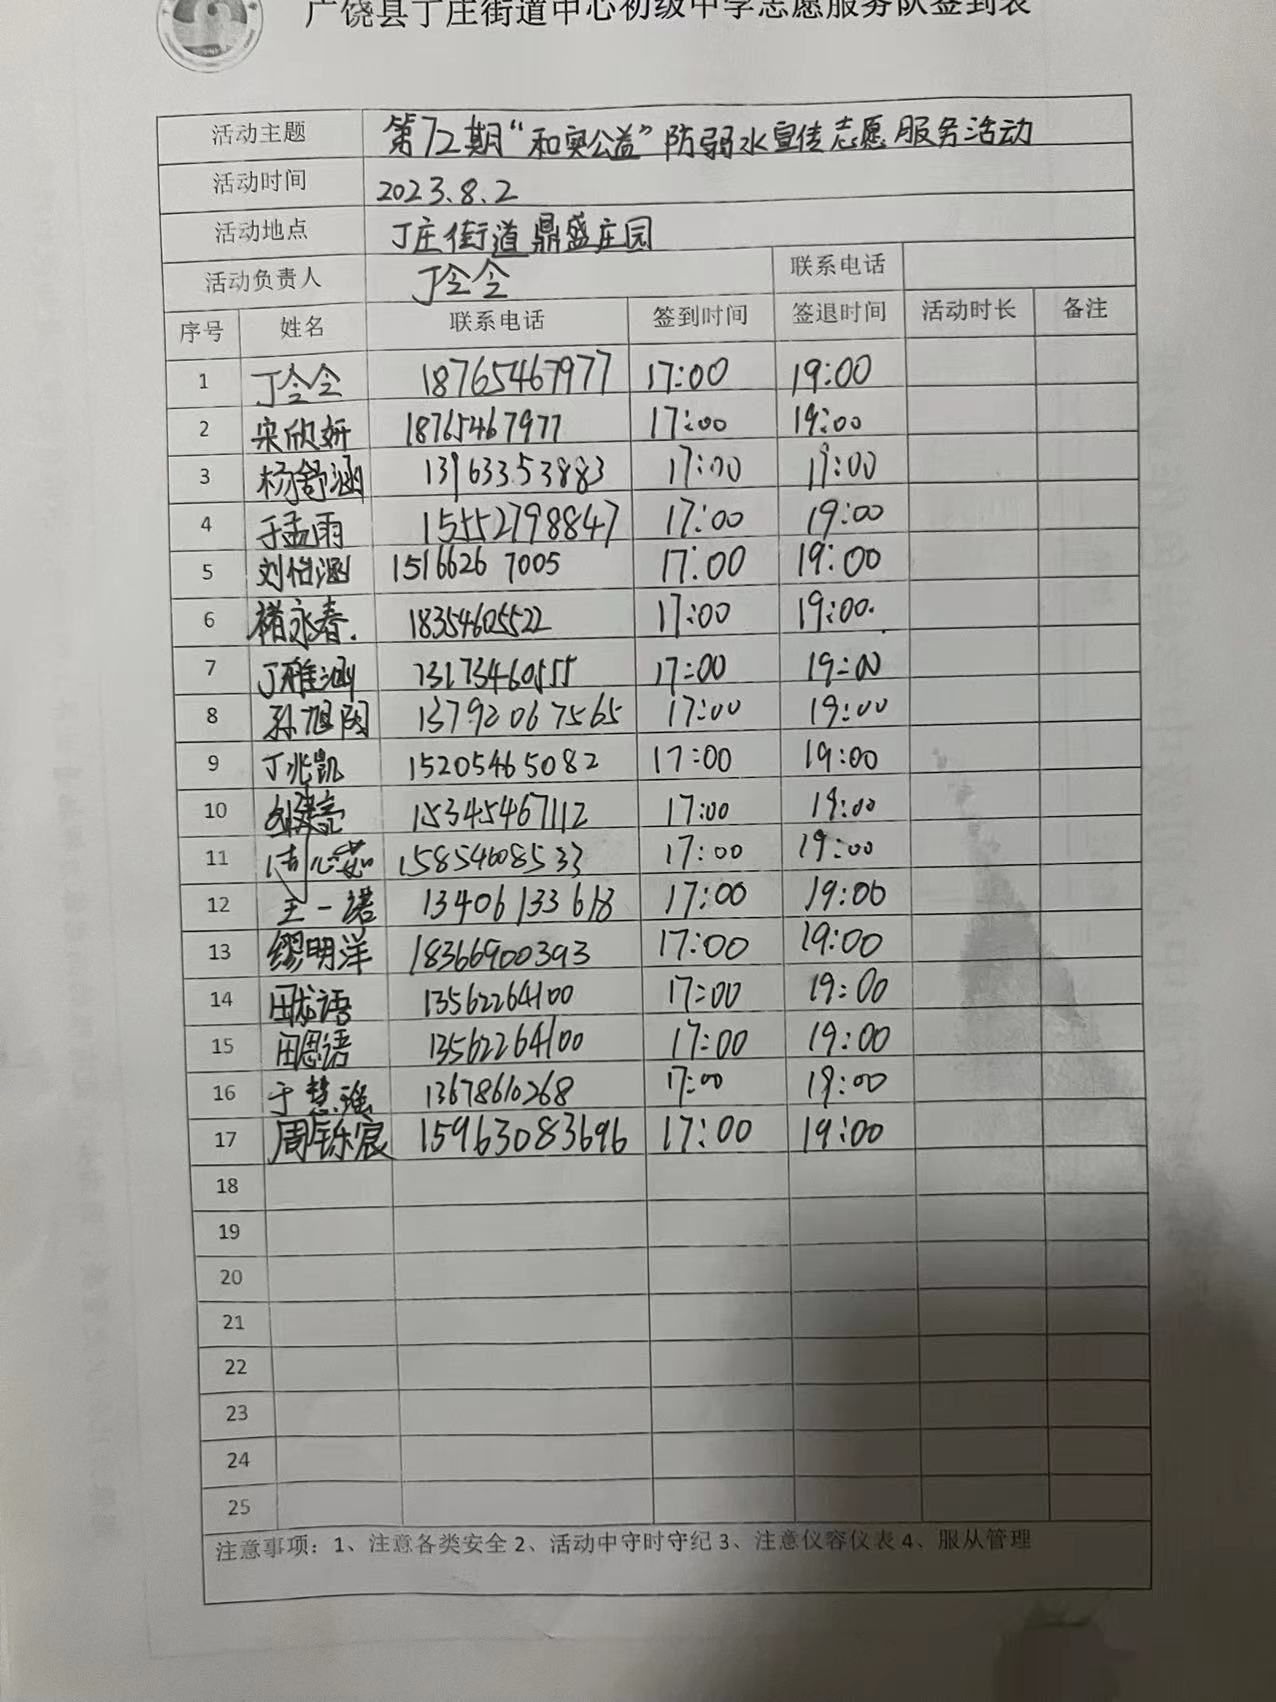 广饶县丁庄街道中心初级中学志愿服务队签到表
活动主题 第72期“和奥公益”防弱水宣传志愿服务活动
活动时间 2023.8.2
活动地点 丁庄街道鼎盛庄园
活动负责人 丁令令 联系电话
序号 姓名 联系电话 签到时间 签退时间 活动时长 备注
1 丁令令 18765467977 17:00 19:00
2 宋欣妍 18765467977 17:00 19:00
3 杨舒涵 13963353883 17:00 19:00
4 于孟雨 15552798847 17:00 19:00
5 刘怡涵 15166267005 17:00 19:00
6 褚永春. 18354605522 17:00 19:00.
7 丁雅涵 13173460555 17:00 19:00
8 孙旭阳 13792067565 17:00 19:00
9 丁兆凯 15205465082 17:00 19:00
10 15345467112 17:00 19:00
11 15854608533 17:00 19:00
12 王一诺 13406133618 17:00 19:00
13 缪明洋 18366900393 17:00 19:00
14 田龙语 13562264100 17:00 19:00
15 田恩语 13562264100 17:00 19:00
16 于慧瑶 13678610268 17:00 19:00
17 周铄宸 15963083696 17:00 19:00
18
19
20
21
22
23
24
25
注意事项：1、注意各类安全 2、活动中守时守纪 3、注意仪容仪表 4、服从管理